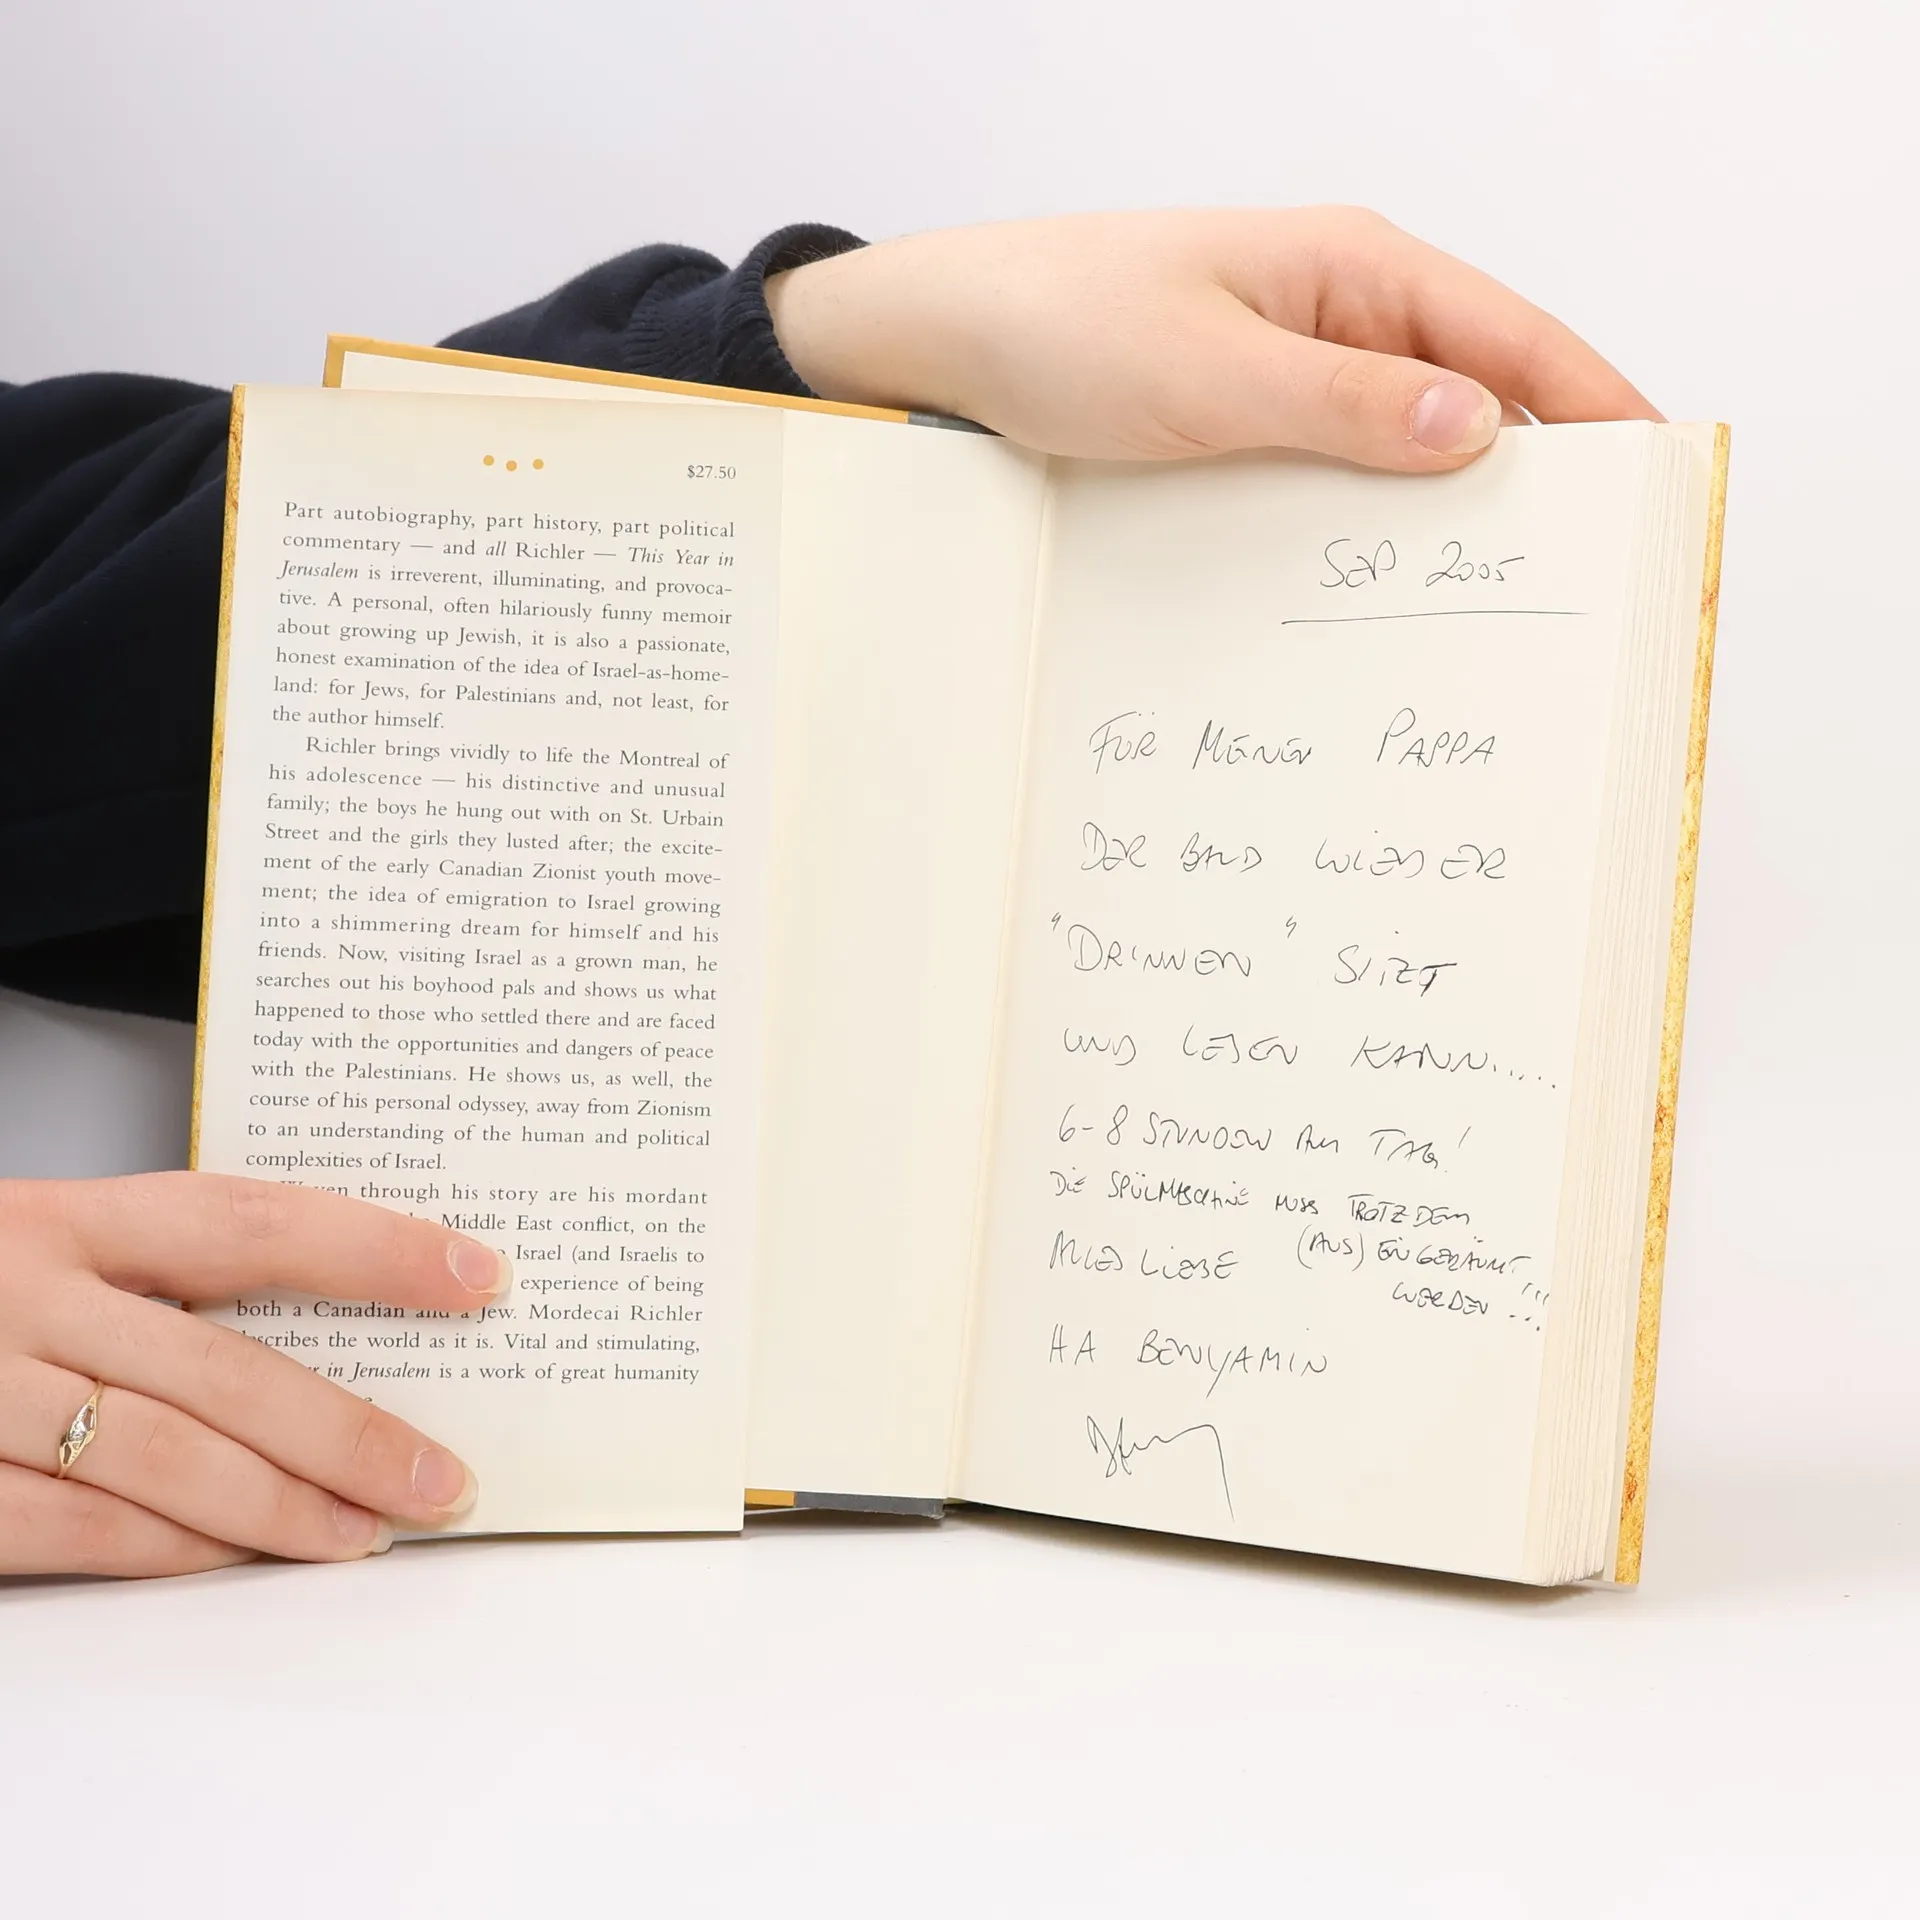 $27.50
Part autobiography, part history, part political
commentary — and all Richler — This Year in
Jerusalem is irreverent, illuminating, and provoca-
tive. A personal, often hilariously funny memoir
about growing up Jewish, it is also a passionate,
honest examination of the idea of Israel-as-home-
land: for Jews, for Palestinians and, not least, for
the author himself.
Richler brings vividly to life the Montreal of
his adolescence — his distinctive and unusual
family; the boys he hung out with on St. Urbain
Street and the girls they lusted after; the excite-
ment of the early Canadian Zionist youth move-
ment; the idea of emigration to Israel growing
into a shimmering dream for himself and his
friends. Now, visiting Israel as a grown man, he
searches out his boyhood pals and shows us what
happened to those who settled there and are faced
today with the opportunities and dangers of peace
with the Palestinians. He shows us, as well, the
course of his personal odyssey, away from Zionism
to an understanding of the human and political
complexities of Israel.
through his story are his mordant
Middle East conflict, on the
Israel (and Israelis to
experience of being
both a Canadian and a Jew. Mordecai Richler
describes the world as it is. Vital and stimulating,
in Jerusalem is a work of great humanity
SEP 2005
FÜR MEINEN PAPPA
DER BALD WIEDER
"DRINNEN" SITZT
UND LESEN KANN.....
6-8 STUNDEN AM TAG!
DIE SPÜLMASCHINE MUSS TROTZDEM
(AUS) EINGERÄUMT
WERDEN !!!
ALLES LIEBE
HA BENYAMIN